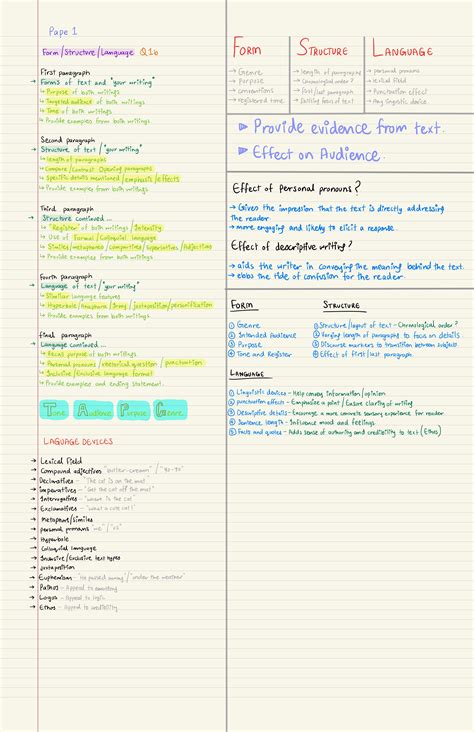 Pape 1
Form/Structure/Language Q1b
First paragraph
→ Forms of text and "your writing"
↳ Purpose of both writings
↳ Targeted audience of both writings
↳ Tone of both writings
↳ Provide examples from both writings
Second paragraph
→ Structure of text/"your writing"
↳ length of paragraphs
↳ Compare/Contrast Opening paragraphs
↳ Specific details mentioned/emphasis/effects
↳ Provide examples from both writings
Third paragraph
→ Structure continued ...
↳ "Register" of both writings/Intensity
↳ Use of Formal/Colloquial language
↳ Similes/metaphores/comparitives/superlatives/Adjectives
↳ Provide examples from both writings
Fourth paragraph
→ Language of text/"your writing"
↳ Similar language features
↳ Hyperbole/Anaphora/Irony/juxtaposition/personification
↳ Provide examples from both writings
final paragraph
→ Language continued ...
↳ Recall purpose of both writings
↳ Personal pronouns/rhetorical question/punctuation
↳ Inclusive/Exclusive language format
↳ Provide examples and ending statement.
Tone Audience Purpose Genre
LAGUAGE DEVICES
→ Lexical field
→ Compound adjectives "butter-cream"/"yo-yo"
→ Declaratives - "The cat is on the mat"
→ imperatives - "Get the cat off the mat"
→ Interrogatives - "where is the cat"
→ Exclamatives - "what a cute cat!"
→ Metaphors/similes
→ personal pronouns "we"/"us"
→ Hyperbole
→ Colloquial language
→ Inclusive/Exclusive text types
→ juxtaposition
→ Euphemism - "He passed away"/"under the weather"
→ Pathos - Appeal to emotions
→ Logos - Appeal to logic
→ Ethos - Appeal to credibility
FORM
→ Genre
→ Purpose
→ conventions
→ registered time
STRUCTURE
→ length of paragraphs
→ Chronological order?
→ Past/Present tense
→ Shifting focus of text
LANGUAGE
→ personal pronouns
→ lexical field
→ Punctuation effect
→ Any linguistic device
▶ Provide evidence from text.
▶ Effect on Audience.
Effect of Personal pronouns?
→ Gives the impression that the text is directly addressing
the reader.
→ more engaging and likely to elicit a response.
Effect of descriptive writing?
→ aids the writer in conveying the meaning behind the text.
→ ebbs the tide of confusion for the reader.
FORM
① Genre
② Intended Audience
③ Purpose
④ Tone and Register
STRUCTURE
① Structure/layout of text - Chronological order?
② Varying length of paragraphs to focus on details
③ Discourse markers to transition between subjects
④ Effect of first/last paragraph.
LANGUAGE
① Linguistic devices - Help convey information/opinion
② punctuation effects - Emphasise a point/Ensure clarity of writing
③ Descriptive details - Encourage a more concrete sensory experience for reader
④ Sentence length - Influence mood and feelings
⑤ Facts and quotes - Adds sense of authority and credibility to text (Ethos)